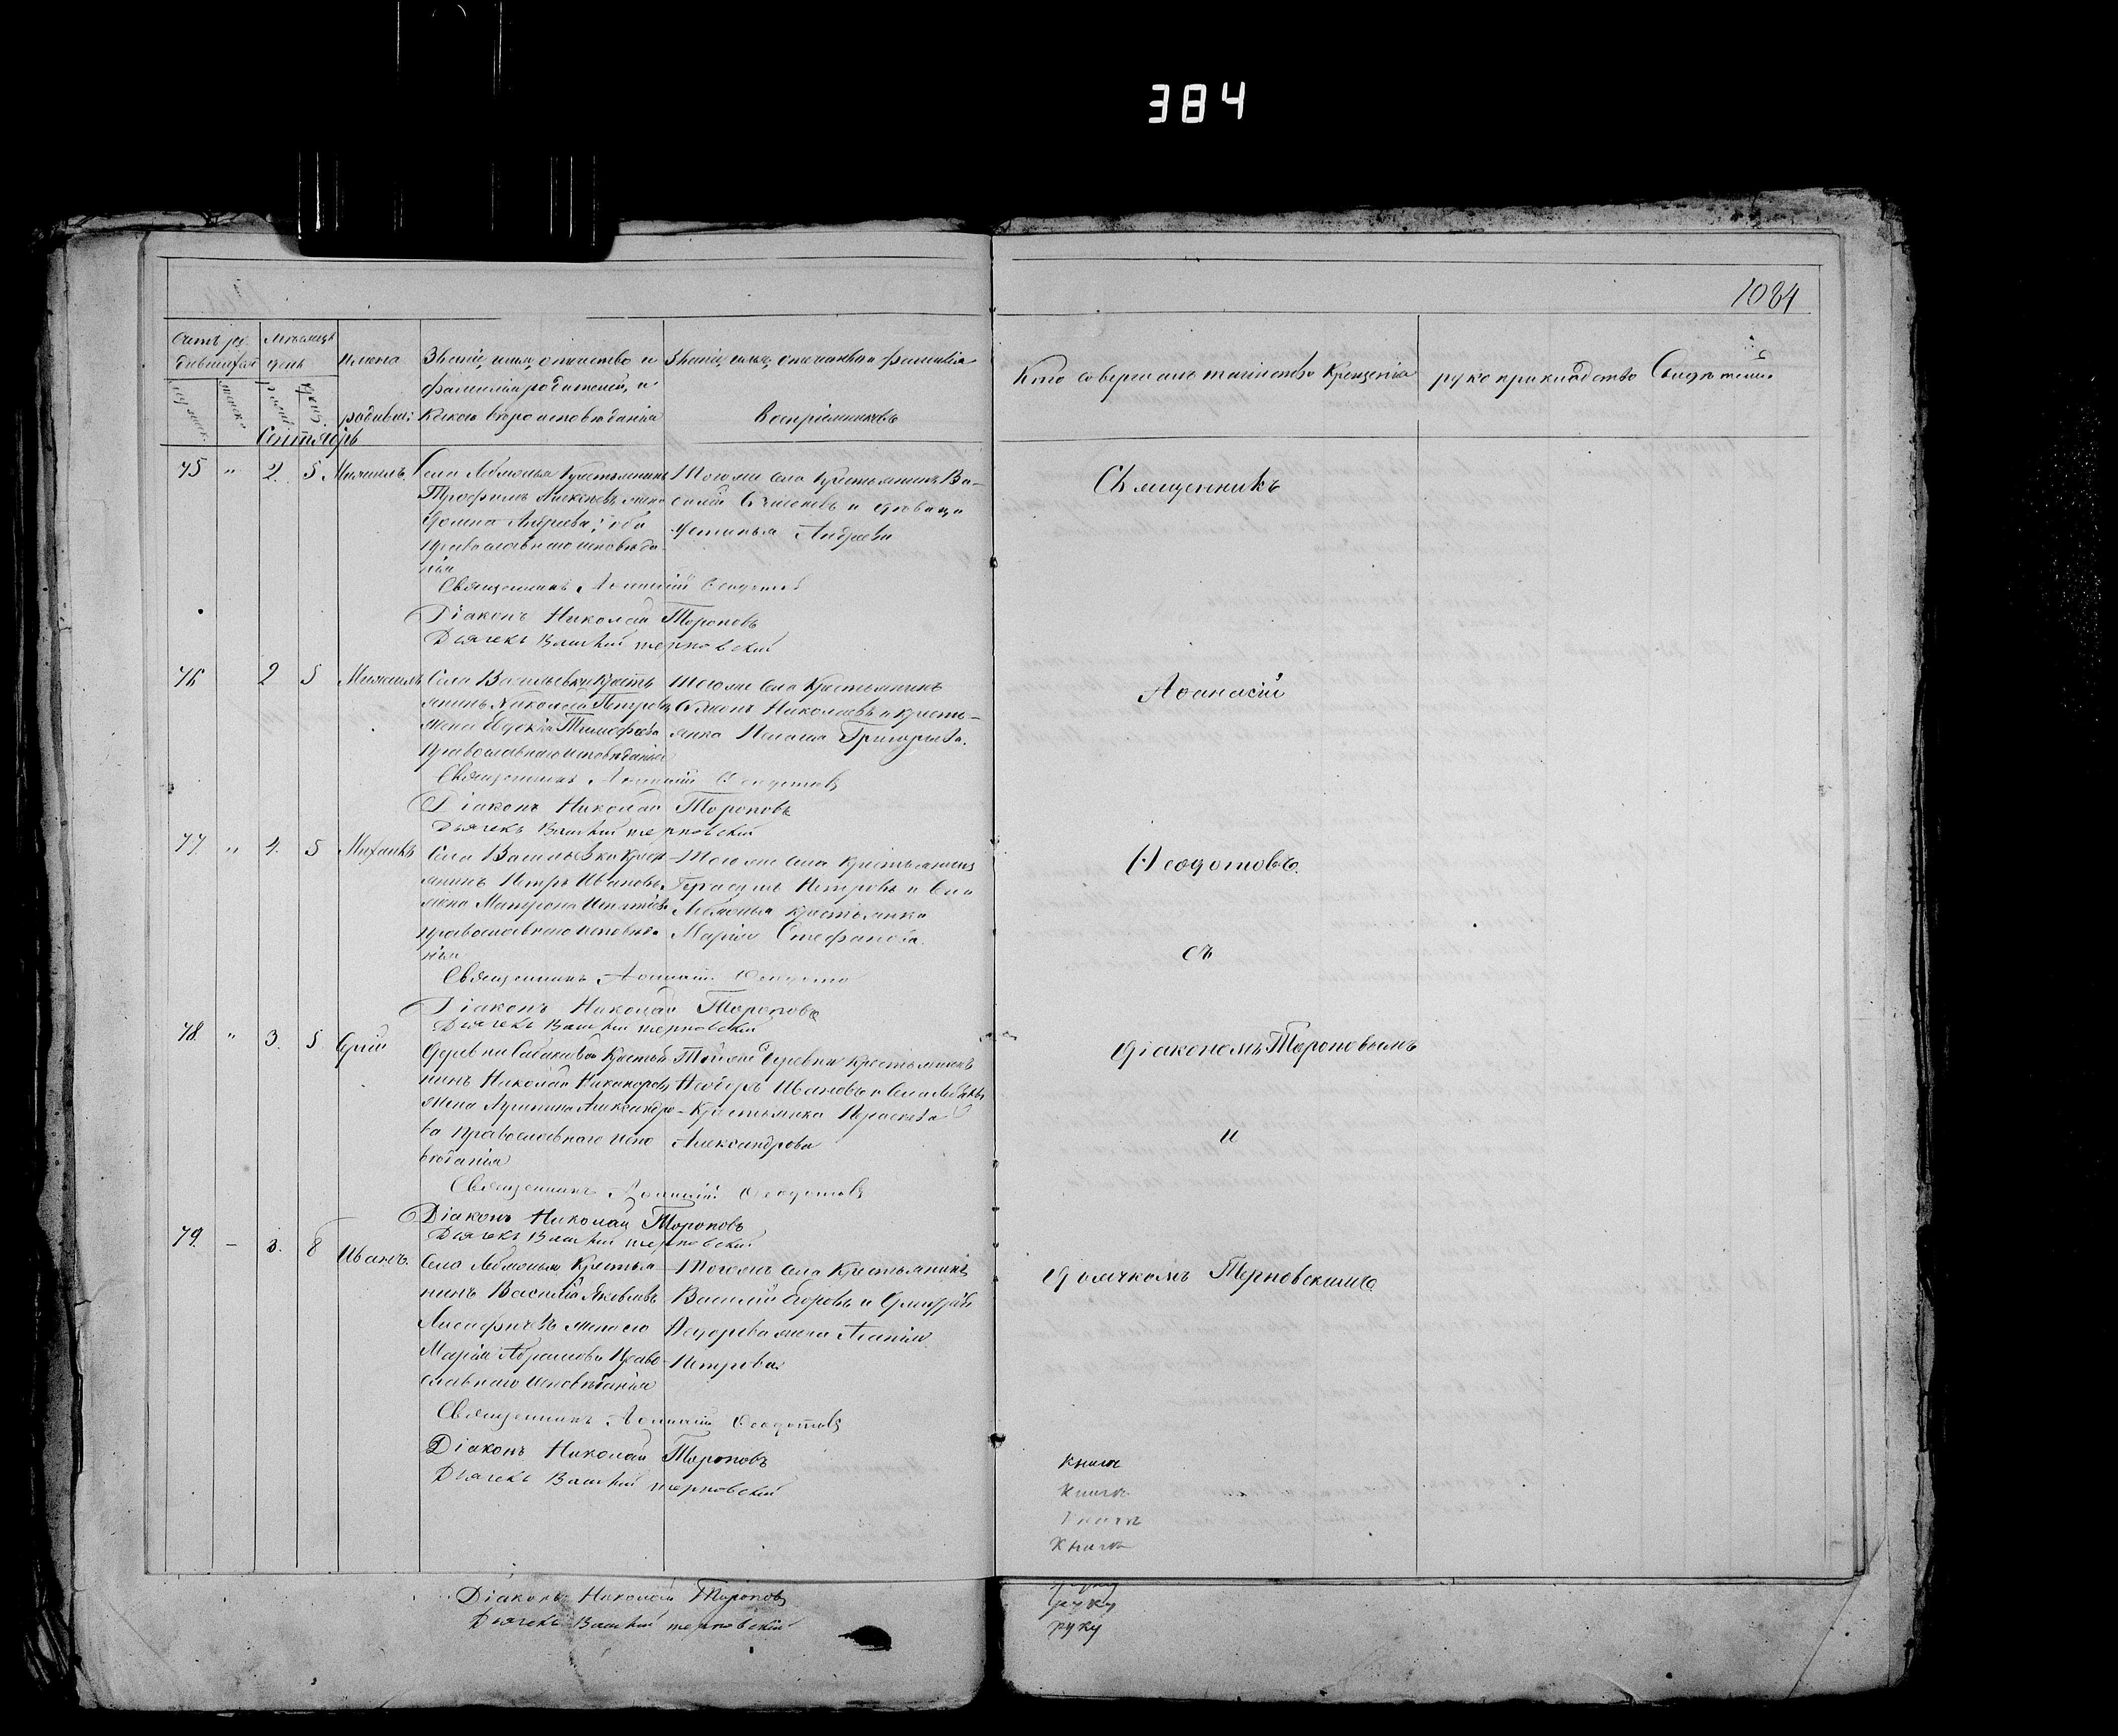 384
1084
Счетъ ро
дившихся
Мѣсяцъ
день
Имена
родивш:
Званіе, имя, отчество и
фамилія родителей, и
какого вѣроисповѣданія
Званіе, имя, отчество и фамилія
Воспріемниковъ
Кто совершалъ таинство Крещенія
рукоприкладство Свидѣтелей
Сентябрь
75 " 2. 5 Михаилъ
Села Лебяжья Крестьянинъ
Трофимъ Алексѣевъ жена
Андреева; оба
православнаго исповѣда
нія
Тогоже села Крестьянинъ Ва-
силій и вдовица
Устинья Андреева
Священникъ Аѳанасій Ѳеодотовъ
Діаконъ Николай Тороповъ
Дьячекъ Василій Терновскій
76 2 5 Михаилъ
Села Васильевки Кресть
янинъ Николай Петровъ
жена Евдокія Тимофѣева
православнаго исповѣданія
Тогоже села Крестьянинъ
Николаевъ и кресть-
янка Пелагія Григорьева.
Священникъ Аѳанасій Ѳеодотовъ
Діаконъ Николай Тороповъ
Дьячекъ Василій Терновскій
77. " 4. 5 Михаилъ
Села Васильевки Крест
янинъ Петръ Ивановъ
жена Матрона Игнатіева
православнаго исповѣда
нія
Тогоже села Крестьянинъ
Герасимъ Петровъ и Села
Лебяжья крестьянка
Марія Стефанова.
Священникъ Аѳанасій Ѳеодотовъ
Діаконъ Николай Тороповъ
Дьячекъ Василій Терновскій
78. " 3. 5. Сергій
Деревни Крестья
нинъ Николай Никаноровъ
жена Агрипина Александро-
ва православнаго испо
вѣданія
Тойже Деревни Крестьянинъ
Ѳеодоръ Ивановъ и Села
Крестьянка Параскева
Александрова
Священникъ Аѳанасій Ѳеодотовъ
Діаконъ Николай Тороповъ
Дьячекъ Василій Терновскій
79. – 3. 8 Иванъ.
Села Лебяжья Крестья
нинъ Василій Яковлевъ
жена его
Марія Абрамова Право
славнаго исповѣданія
Тогожъ села Крестьянинъ
Василій Егоровъ и
Ѳедорова жена
Петрова
Священникъ Аѳанасій Ѳеодотовъ
Діаконъ Николай Тороповъ
Дьячекъ Василій Терновскій
Діаконъ Николай Тороповъ
Дьячекъ Василій Терновскій
Священникъ
Аѳанасій
Ѳеодотовъ
съ
Діакономъ Тороповымъ
и
Дьячкомъ Терновскимъ
книгѣ
книгѣ
книгѣ
книгѣ
руку
руку
руку